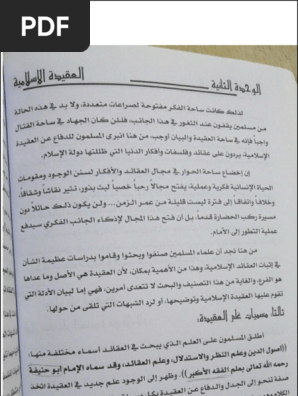 PDF
الوحدة الثانية
العقيدة الإسلامية
لذلك كانت ساحة الفكر مفتوحة لصراعات متعددة، ولا بد في هذه الحالة
من مسلمين يقفون عند الثغور في هذا الجانب، فلئن كان الجهاد في ساحة القتال
واجباً فإنه في ساحة العقيدة والبيان أوجب، من هنا انبرى المسلمون للدفاع عن العقيدة
الإسلامية، يردون على عقائد، وفلسفات وأفكار الدنيا التي ظللتها دولة الإسلام.
إن إخضاع ساحة الحوار في مجال العقائد والأفكار لسنن الوجود ومقومات
الحياة الإنسانية فكرية وعملية، يفتح مجالاً رحباً خصباً لبث بذور، تثير نقاشاً وشقاقاً،
وخلافاً واتفاقاً إلى فترة ليست قليلة من عمر الزمن... ولن يكون ذلك حائلاً دون
مسيرة ركب الحضارة قدماً، بل أن فتح هذا المجال لإذكاء الجانب الفكري سيدفع
عملية التطور إلى الأمام.
من هنا نجد أن علماء المسلمين صنفوا وبحثوا وقاموا بدراسات عظيمة الشأن
في إثبات العقائد الإسلامية، وهذا من الأهمية بمكان، لأن العقيدة هي الأصل وما عداها
هو الفرع، والغاية من هذا التصنيف والبحث لا تتعدى أمرين، فهي إما لبيان الأدلة التي
تقوم عليها العقيدة الإسلامية وتوضيحها، أو لرد الشبهات التي تلقى من حولها.
ثالثاً: مسميات علم العقيدة:
أطلق المسلمون على العلم الذي يبحث في العقائد أسماء مختلفة منها:
((أصول الدين وعلم النظر والاستدلال، وعلم العقائد، وقد سماه الإمام أبو حنيفة
رحمه الله تعالى بعلم الفقه الأكبر)). وظهر إلى الوجود علم جديد في العقيدة اتخذ
صفة تنحو إلى الجدل والدفاع عن العقيدة